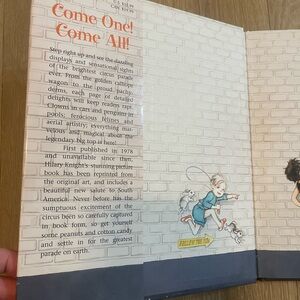 Come One!
Come All!
Step right up and see the dazzling
displays and sensational sights
of the brightest circus parade
ever. From the golden calliope
wagon to the proud, pachy-
derms, each page of detailed
delights will keep readers rapt.
Clowns in cars and penguins in
ferocious felines and
aerial artistry; everything mar-
velous and magical about the
legendary big top is here!
First published in 1978
and unavailable since then,
Hilary Knight's stunning picture
book has been reprinted from
the original art, and includes a
beautiful new salute to South
America! Never before has the
sumptuous excitement of the
circus been so carefully captured
in book form, so get yourself
some peanuts and cotton candy
and settle in for the greatest
parade on earth.
FOLLOW THE